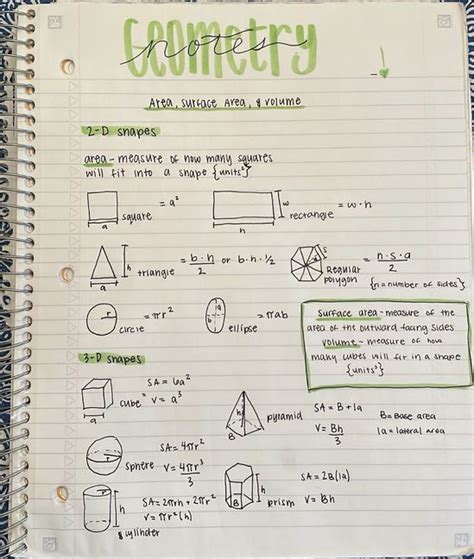 Geometry
notes
Area, surface Area, & volume
2-D shapes
area - measure of how many squares
will fit into a shape {units²}
a
square
= a²
w
h
rectangle
= w·h
h
triangle
= b·h/2 or b·h·1/2
s
Regular
polygon
= n·s·a/2
{n=number of sides}
r
circle
= πr²
a
b
ellipse
= πab
Surface area - measure of the
area of the outward facing sides
volume - measure of how
many cubes will fit in a shape
{units³}
3-D shapes
a
cube
SA = 6a²
V = a³
h
B
pyramid
SA = B + la
V = Bh/3
B = Base area
la = lateral area
r
sphere
SA = 4πr²
V = 4πr³/3
h
cylinder
SA = 2πrh + 2πr²
V = πr²(h)
B
h
prism
SA = 2B(la)
V = Bh